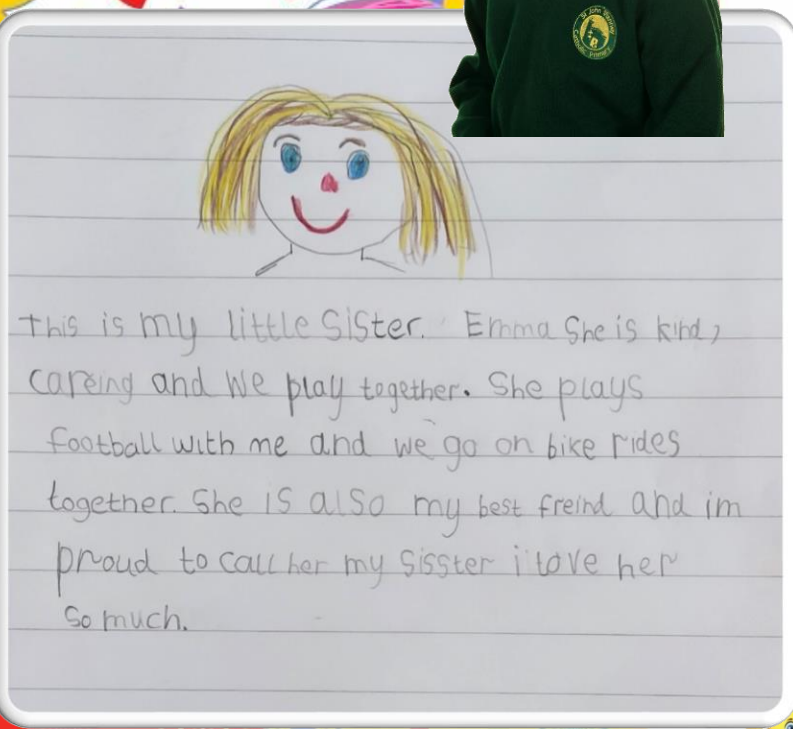 St John Vianney
Catholic Primary
This is my little SiSter. Emma She is kind,
careing and We play together. She plays
football with me and we go on bike rides
together. She is also my best freind and im
proud to call her my Sisster i love her
So much.